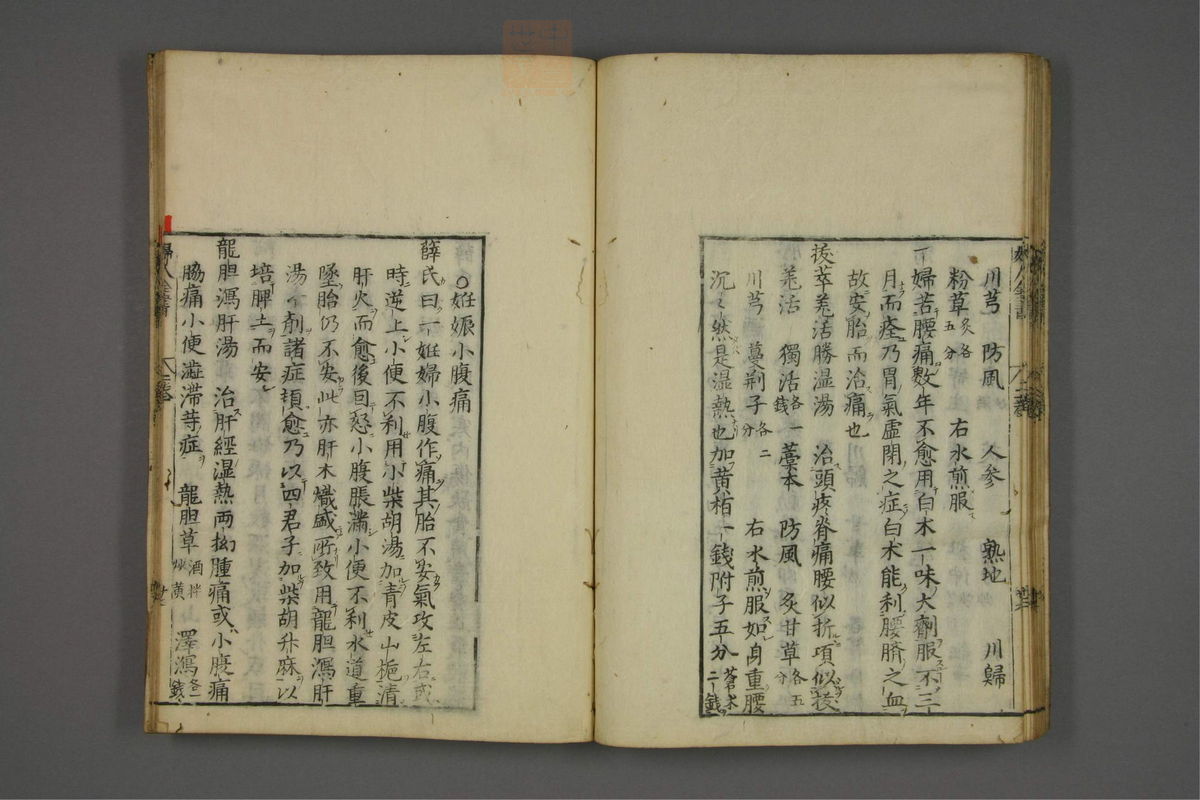 川芎 防風 人参 熟地 川歸
粉草炙各五分 右水煎服
一婦苦腰痛数年不愈用白朮一味大劑服不三
月而痊乃胃氣虛閉之症白朮能利腰臍之血
故安胎而治痛也
拔萃羌活勝湿湯 治頭疼脊痛腰似折項似拔
羌活 獨活各一錢 藁本 防風 炙甘草各五分
川芎 蔓荊子各二分 右水煎服如身重腰
沉々然是湿熱也加黄栢一錢附子五分蒼朮二錢
○姙娠小腹痛
薛氏曰一姙婦小腹作痛其胎不安氣攻左右或
時逆上小便不利用小柴胡湯加青皮山梔清
肝火而愈後因怒小腹脹滿小便不利水道重
墜胎仍不安此亦肝木熾盛所致用龍胆瀉肝
湯一劑諸症頓愈乃以四君子加柴胡升麻以
培脾土而安
龍胆瀉肝湯 治肝經湿熱両拗腫痛或小腹痛
脇痛小便澁滞等症 龍胆草酒拌炒黄 澤瀉各一錢
婦人全書